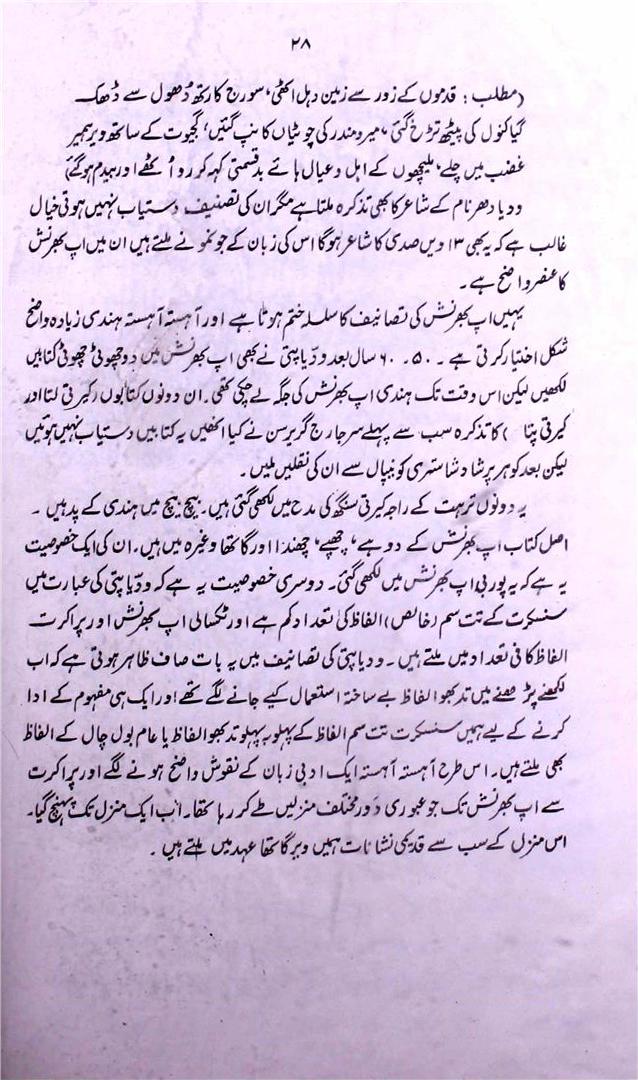 ۲۸
(مطلب: قدموں کے زور سے زمین دہل اٹھی، سورج کا رتھ دھول سے ڈھک
گیا کنول کی پیٹھ تڑخ گئی، میرو مندر کی چوٹیاں کانپ گئیں، گجیوت کے ساتھ ویر ہمیر
غضب میں چلے، ملیچھوں کے اہل و عیال ہائے بدقسمتی کہہ کر رو اٹھے اور بیدم ہو گئے)
ودیا دھر نام کے شاعر کا بھی تذکرہ ملتا ہے مگر ان کی تصنیف دستیاب نہیں ہوتی خیال
غالب ہے کہ یہ بھی ۱۳ ویں صدی کا شاعر ہوگا اس کی زبان کے جو نمونے ملتے ہیں ان میں اپ بھرنش
کا عنصر واضح ہے۔
یہیں اپ بھرنش کی تصانیف کا سلسلہ ختم ہوتا ہے اور آہستہ آہستہ ہندی زیادہ واضح
شکل اختیار کرتی ہے۔ ۵۰۔ ۶۰ سال بعد ودّیاپتی نے بھی اپ بھرنش میں دو چھوٹی چھوٹی کتابیں
لکھیں لیکن اس وقت تک ہندی اپ بھرنش کی جگہ لے چکی تھی۔ ان دونوں کتابوں (کیرتی لتا اور
کیرتی پتا) کا تذکرہ سب سے پہلے سر جارج گریرسن نے کیا انھیں یہ کتابیں دستیاب نہیں ہوئیں
لیکن بعد کو ہر پرشاد شاستری کو نیپال سے ان کی نقلیں ملیں۔
یہ دونوں ترہت کے راجہ کیرتی سنگھ کی مدح میں لکھی گئی ہیں۔ بیچ بیچ میں ہندی کے پد ہیں۔
اصل کتاب اپ بھرنش کے دوہے، چھپے، چھندا اور گاتھا وغیرہ میں ہیں۔ ان کی ایک خصوصیت
یہ ہے کہ یہ پوربی اپ بھرنش میں لکھی گئی۔ دوسری خصوصیت یہ ہے کہ ودّیاپتی کی عبارت میں
سنسکرت کے تت سم (خالص) الفاظ کی تعداد کم ہے اور ٹکسالی اپ بھرنش اور پراکرت
الفاظ کافی تعداد میں ملتے ہیں۔ ودیاپتی کی تصانیف میں یہ بات صاف ظاہر ہوتی ہے کہ اب
لکھنے پڑھنے میں تدبھو الفاظ بے ساختہ استعمال کیے جانے لگے تھے اور ایک ہی مفہوم کے ادا
کرنے کے لیے ہمیں سنسکرت تت سم الفاظ کے پہلو بہ پہلو تدبھو الفاظ یا عام بول چال کے الفاظ
بھی ملتے ہیں۔ اس طرح آہستہ آہستہ ایک ادبی زبان کے نقوش واضح ہونے لگے اور پراکرت
سے اپ بھرنش تک جو عبوری دور مختلف منزلیں طے کر رہا تھا۔ اب ایک منزل تک پہنچ گیا۔
اس منزل کے سب سے قدیمی نشانات ہمیں ویر گاتھا عہد میں ملتے ہیں۔